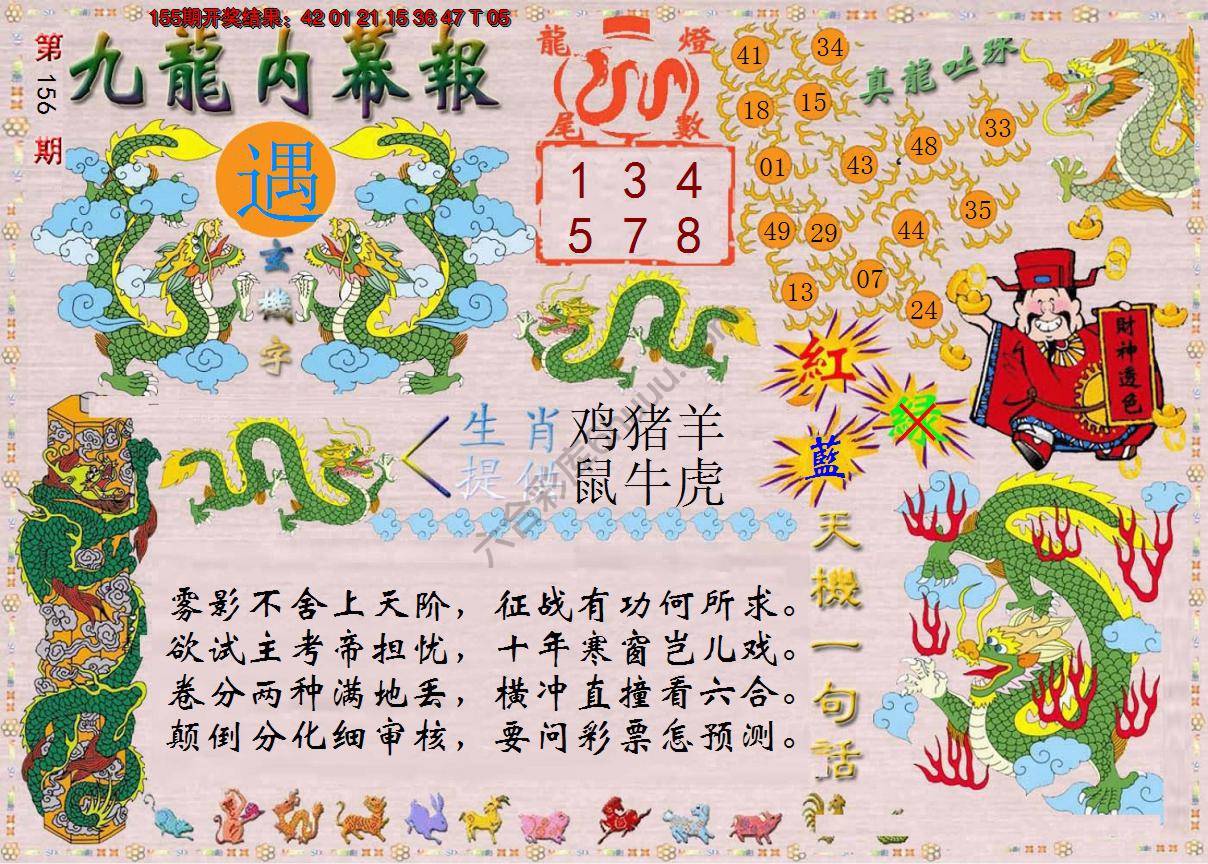 155期开奖结果：42 01 21 15 36 47 T 05
第156期
九龍内幕報
遇
玄機字
龍燈
尾數
1 3 4
5 7 8
真龍吐珠
41
34
18
15
48
33
01
43
35
49
29
44
13
07
24
財神透色
紅
绿
藍
生肖
提供
鸡猪羊
鼠牛虎
天機一句話
雾影不舍上天阶，征战有功何所求。
欲试主考帝担忧，十年寒窗岂儿戏。
卷分两种满地丢，横冲直撞看六合。
颠倒分化细审核，要问彩票怎预测。